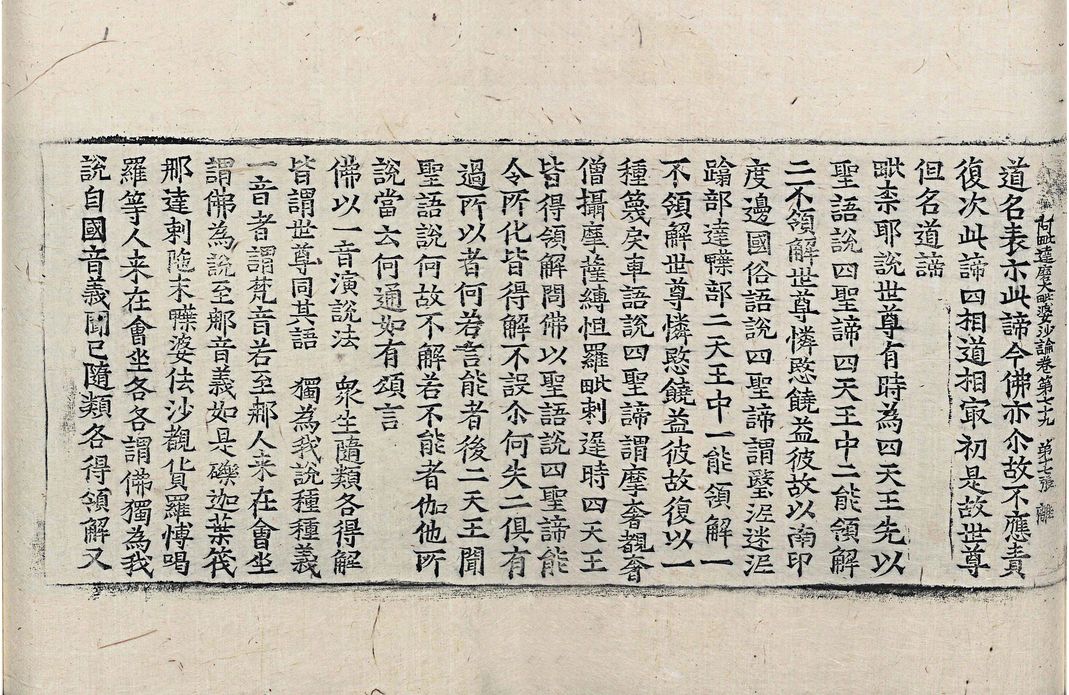 道名表示此諦今佛亦尒故不應責
阿毗達磨大毗婆沙論卷第七十九 第十七張 離
復次此諦四相道相冣初是故世尊
但名道諦
毗柰耶說世尊有時為四天王先以
聖語說四聖諦四天王中二能領解
二不領解世尊憐愍饒益彼故以南印
度邊國俗語說四聖諦謂瑿泥迷泥
蹹部達㗚部二天王中一能領解一
不領解世尊憐愍饒益彼故復以一
種篾戾車語說四聖諦謂摩奢覩奢
僧攝摩薩縛怛羅毗剌遟時四天王
皆得領解問佛以聖語說四聖諦能
令所化皆得解不設尒何失二俱有
過所以者何若言能者後二天王聞
聖語說何故不解若不能者伽他所
說當云何通如有頌言
佛以一音演說法 衆生隨類各得解
皆謂世尊同其語 獨為我說種種義
一音者謂梵音若至那人来在會坐
謂佛為說至那音義如是礫迦葉筏
那達剌陁末㗚婆佉沙覩貨羅博喝
羅等人来在會坐各各謂佛獨為我
說自國音義聞已隨類各得領解又